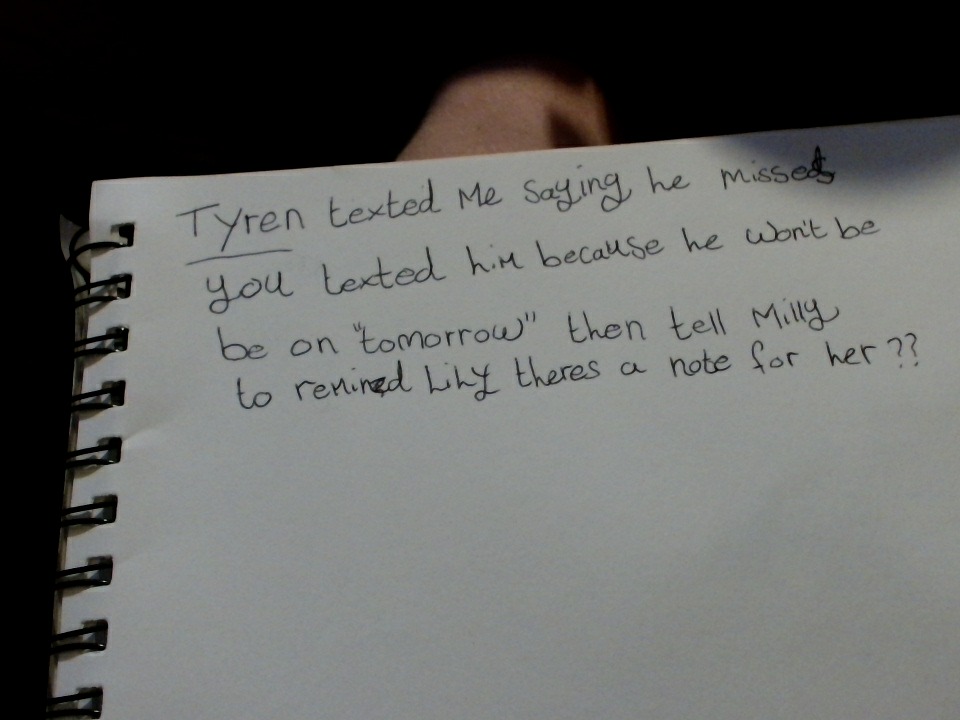 Tyren texted Me saying he missed
you texted him because he won't be
be on "tomorrow" then tell Milly
to remined Lihy theres a note for her ??